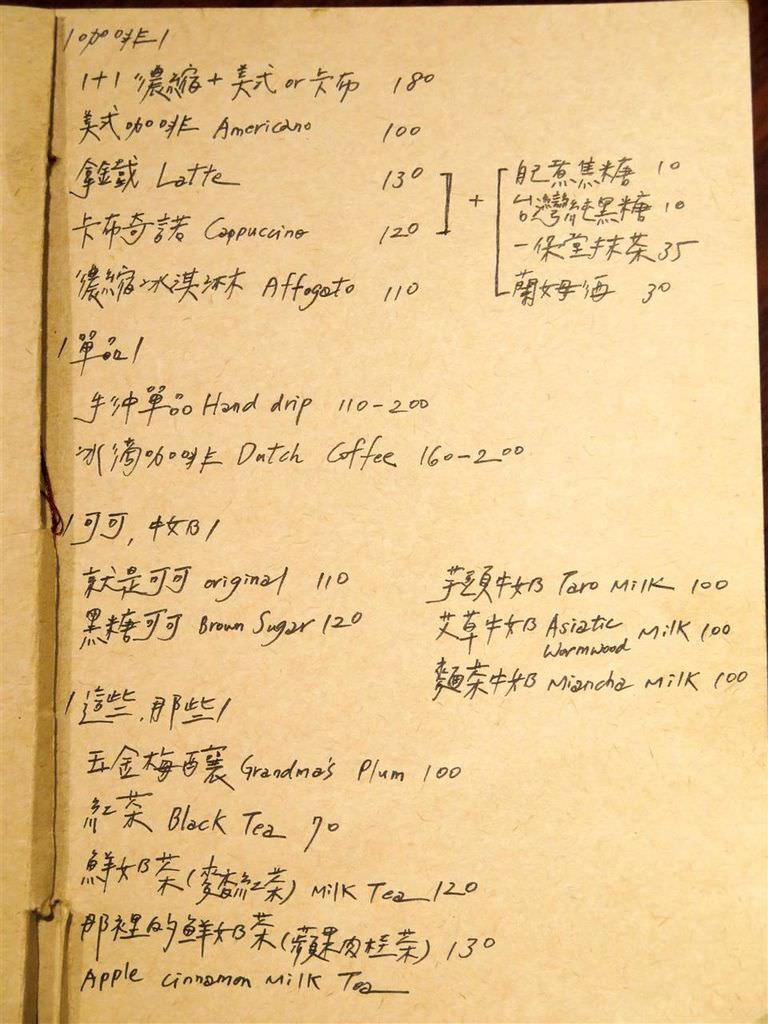 /咖啡/
1+1 濃縮+美式 or 卡布 180
美式咖啡 Americano 100
拿鐵 Latte 130
卡布奇諾 Cappuccino 120
濃縮冰淇淋 Affogato 110
+
自己煮焦糖 10
台灣純黑糖 10
一保堂抹茶 35
蘭姆酒 30
/單品/
手沖單品 Hand drip 110-200
冰滴咖啡 Dutch Coffee 160-200
/可可,牛奶/
就是可可 original 110
黑糖可可 Brown Sugar 120
芋頭牛奶 Taro Milk 100
艾草牛奶 Asiatic Wormwood Milk 100
麵茶牛奶 Miancha Milk 100
/這些,那些/
五金梅釀 Grandma's Plum 100
紅茶 Black Tea 70
鮮奶茶(麥香紅茶) Milk Tea 120
那裡的鮮奶茶(蘋果肉桂茶) 130
Apple Cinnamon Milk Tea